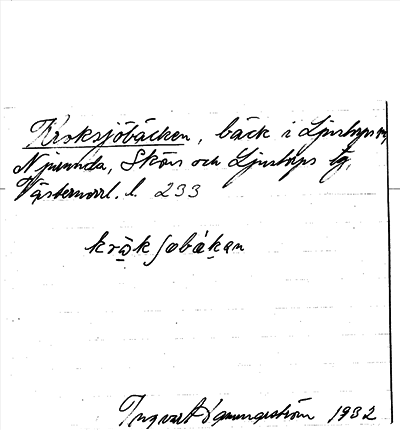 Kroksjöbäcken, bäck i Ljustorps sn,
Njurunda, Sköns och Ljustorps tg,
Västernorrl. l. 233
krωksobäkan
Ingvart 1932